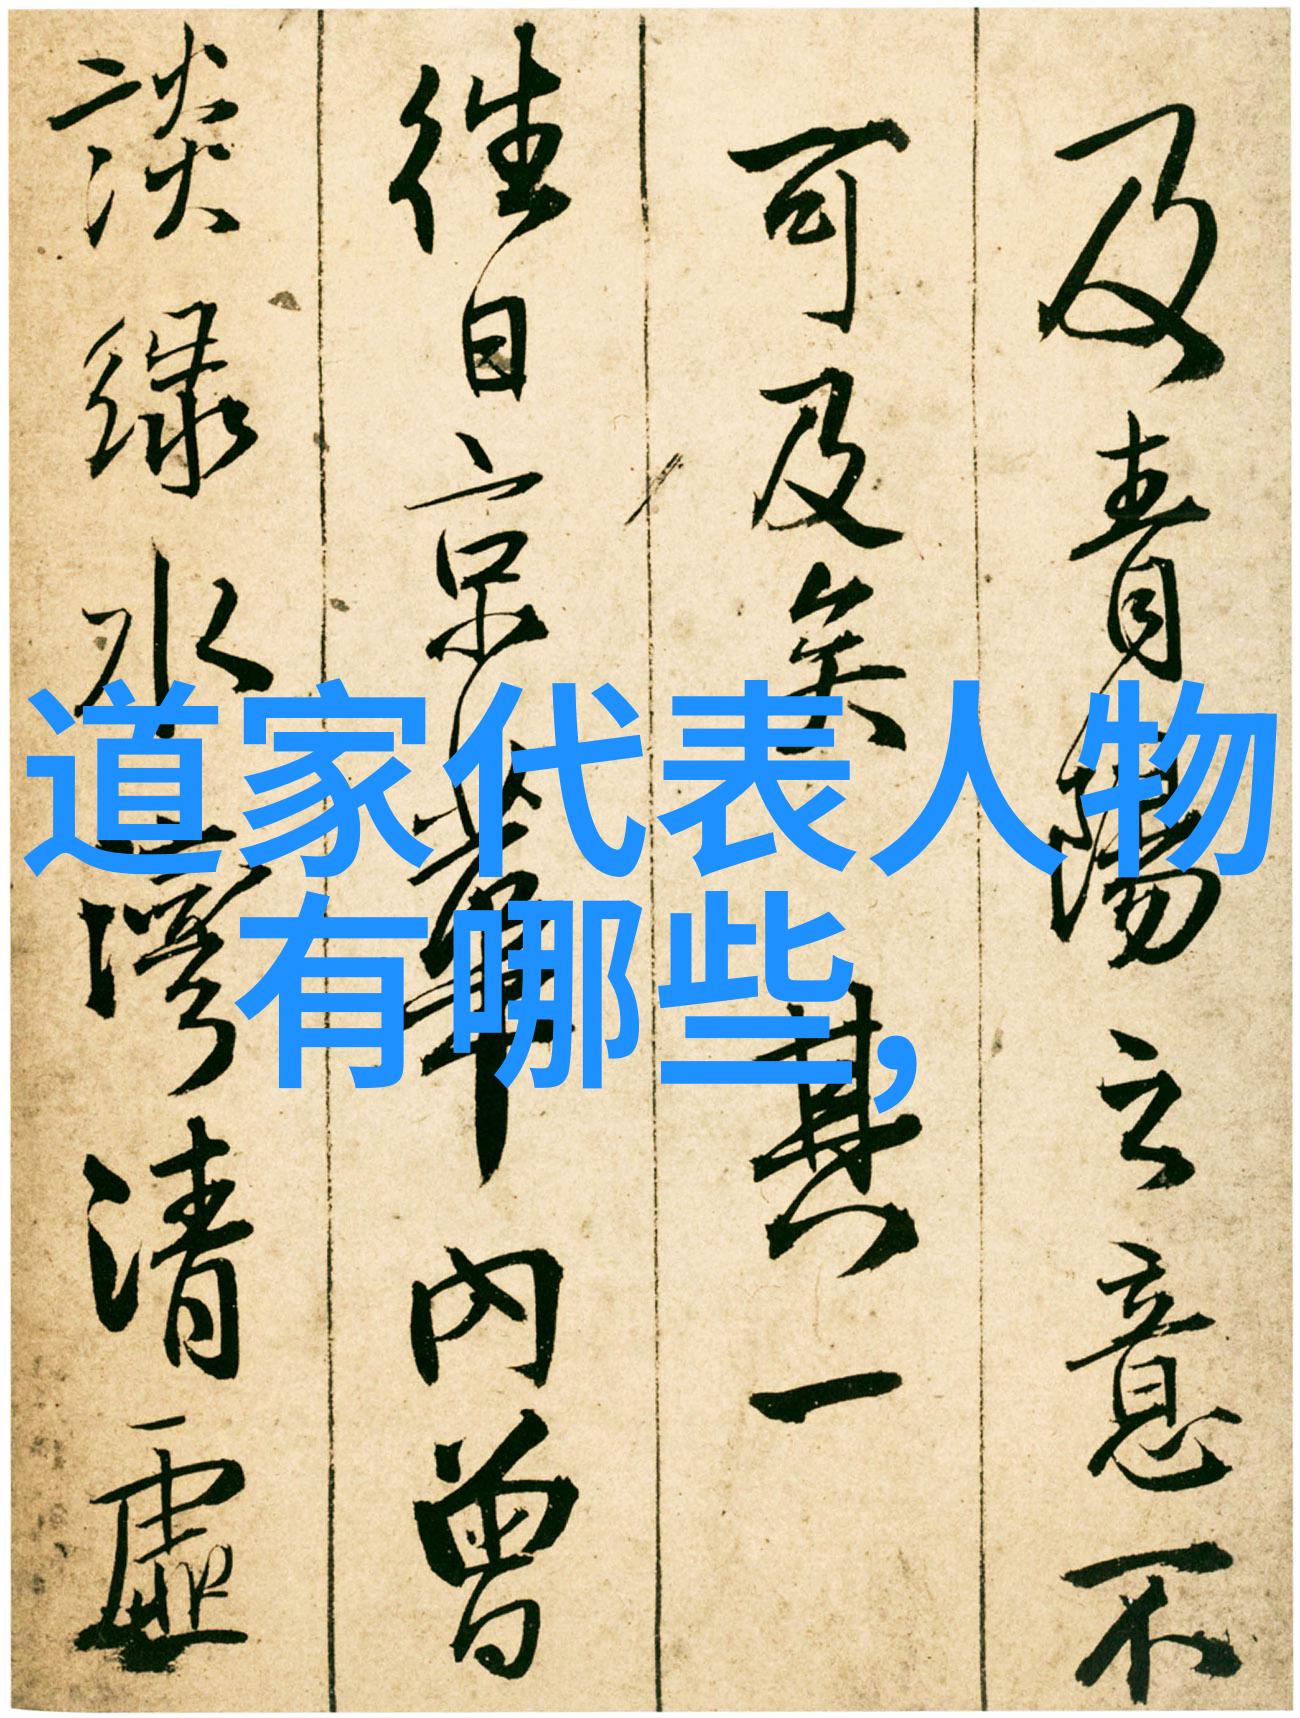 及青陽之意不
可及矣 其一
往日京華內曾
談綠水灣清虛
道家代表人物
有哪些,